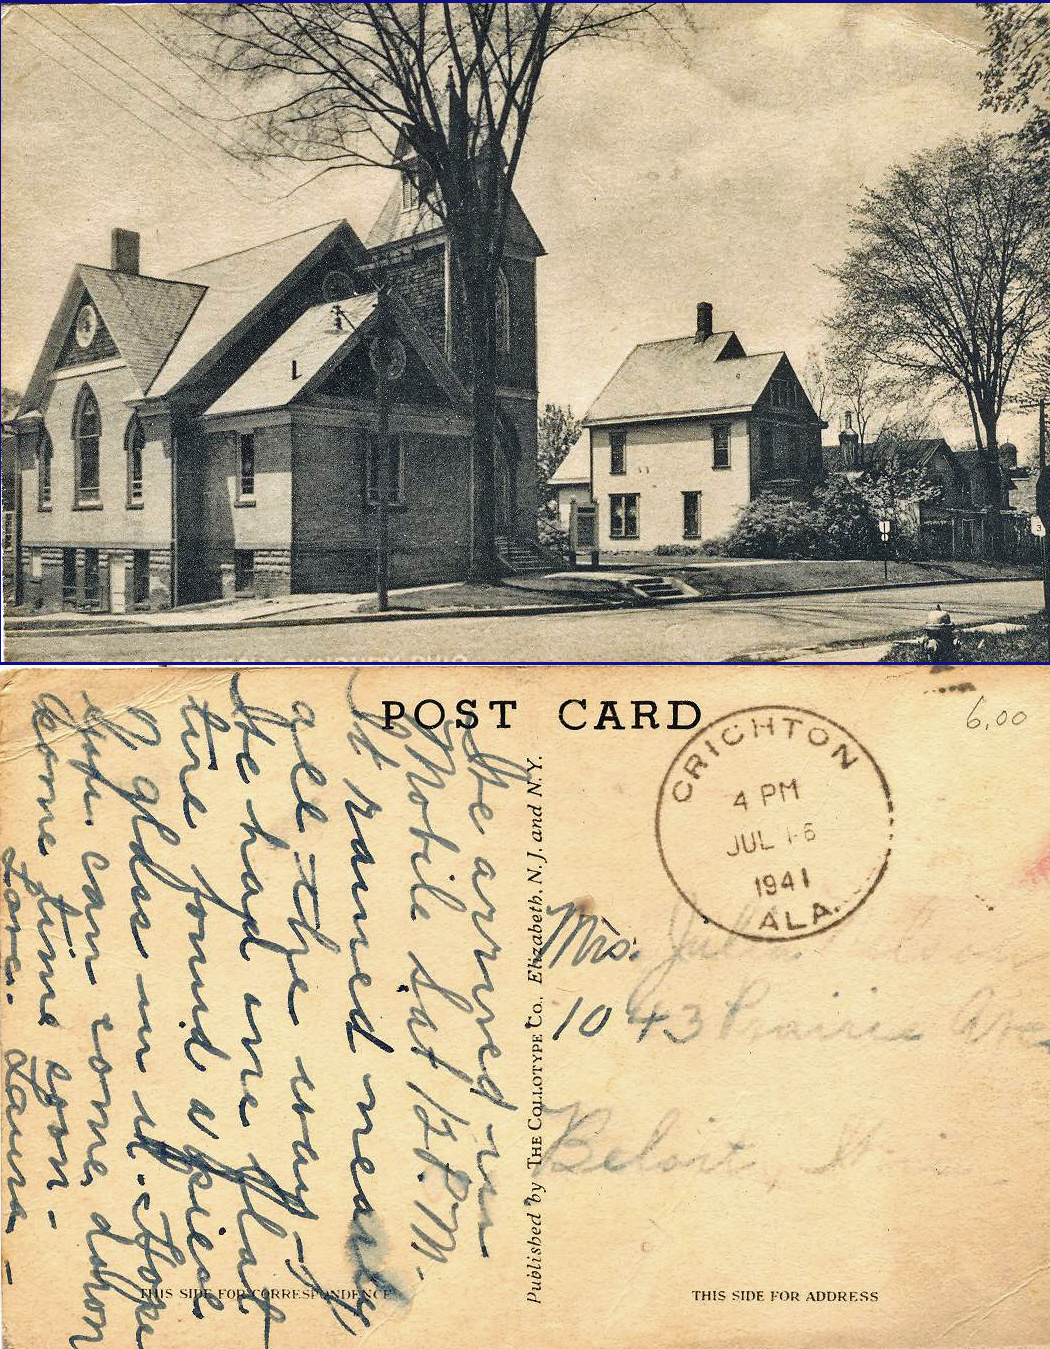 POST CARD
6,00
CRICHTON
4 PM
JUL 16
1941
ALA.
We arrived in
Mobile Sat 12 P.M.
It rained nearly
all the way -
We had one flat
tire found a piece
of glass in it. Hope
you can come down
some time soon -
Love. Laura -
Published by THE COLLOTYPE Co., Elizabeth, N. J. and N. Y.
Mrs.
1043 Prairie Ave
Beloit, Wis
THIS SIDE FOR CORRESPONDENCE
THIS SIDE FOR ADDRESS